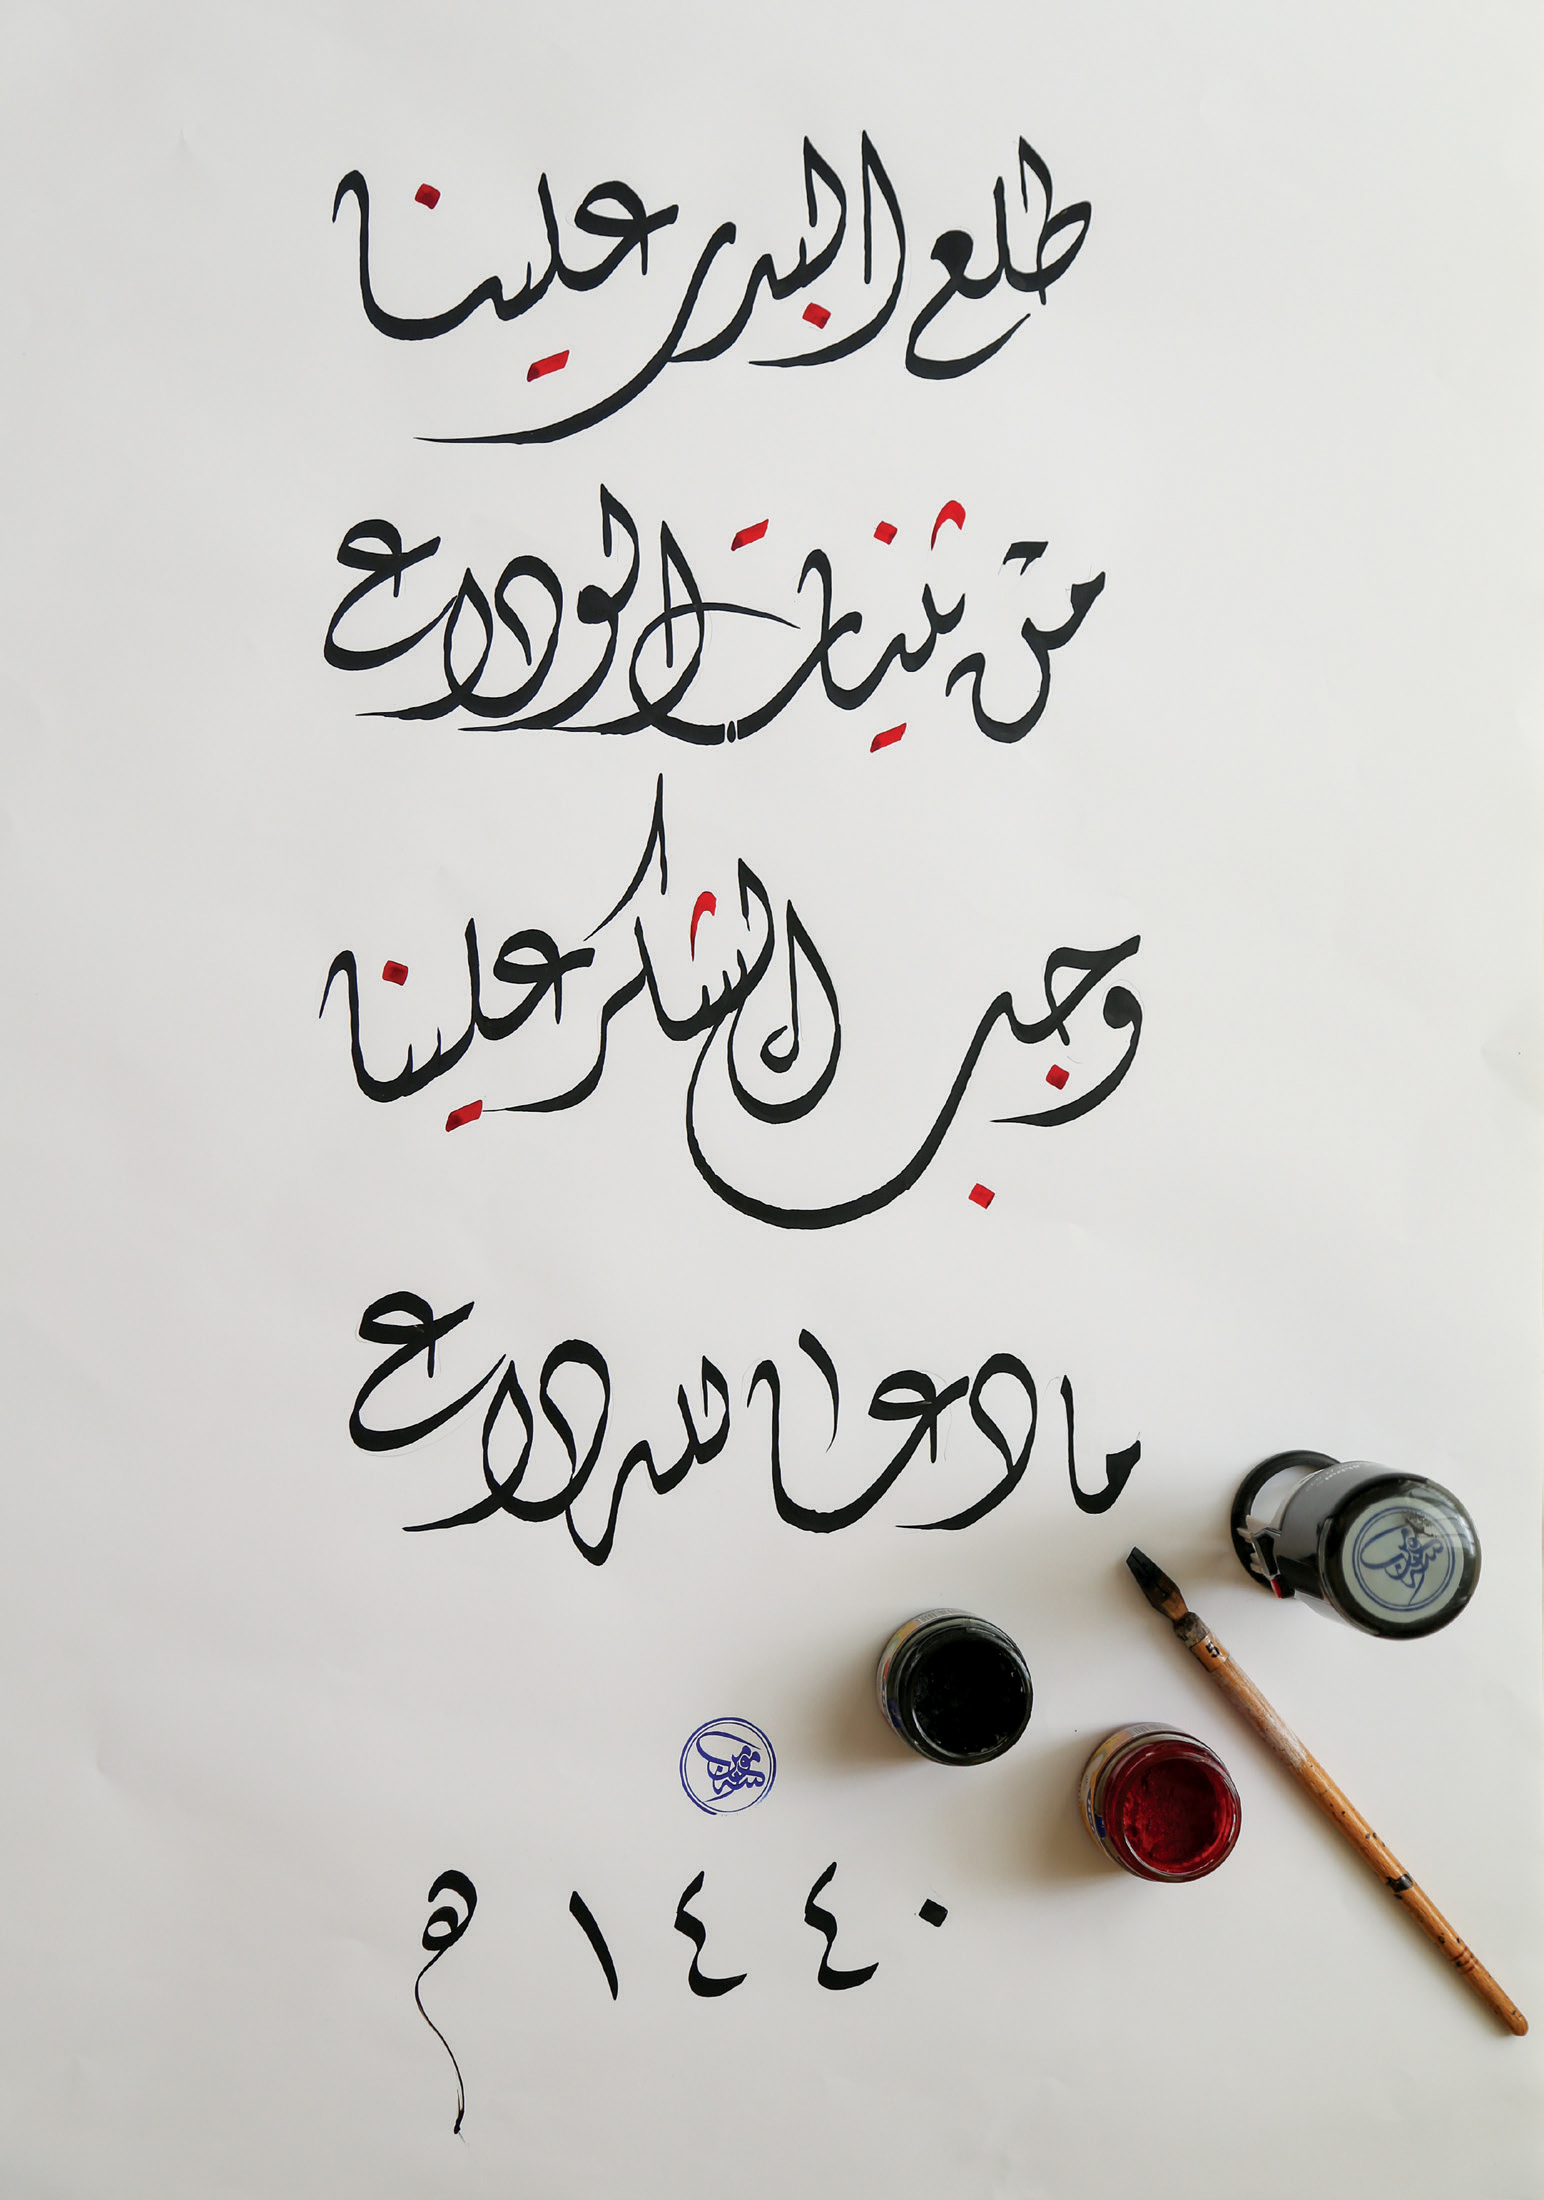 طلع البدر علينا
من ثنيات الوداع
وجب الشكر علينا
ما دعا الله داع
١٤٤٠ ه
5